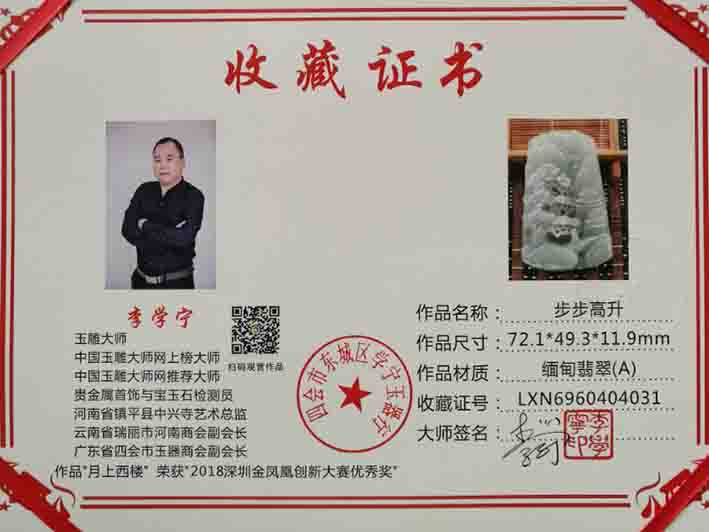 收藏证书
李学宁
玉雕大师
中国玉雕大师网上榜大师
中国玉雕大师网推荐大师
贵金属首饰与宝玉石检测员
河南省镇平县中兴寺艺术总监
云南省瑞丽市河南商会副会长
广东省四会市玉器商会副会长
作品"月上西楼" 荣获"2018深圳金凤凰创新大赛优秀奖"
扫码观赏作品
四会市东城区学宁玉器行
作品名称: 步步高升
作品尺寸: 72.1*49.3*11.9mm
作品材质: 缅甸翡翠(A)
收藏证号: LXN6960404031
大师签名:
李學寧印